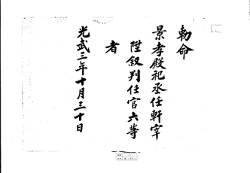 勅命
景孝殿祀丞任軒宰
陞叙判任官六等
者
光武三年十月三十日